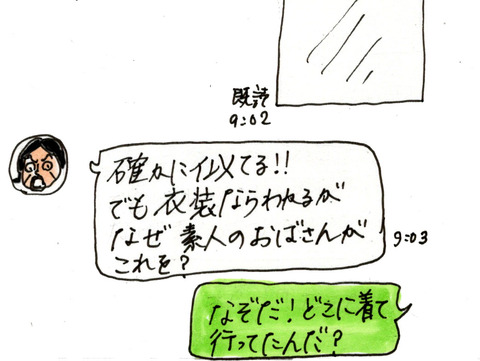 既読
9:02
確かに似てる!!
でも衣装ならわかるが
なぜ素人のおばさんが
これを?
9:03
なぞだ!どこに着て
行ってたんだ?